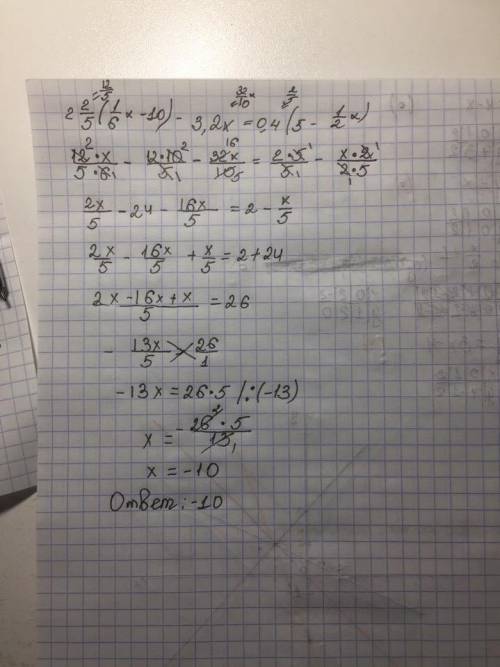 = 12/5 32/10 x 2/5
2 2/5 (1/6 x - 10) - 3,2x = 0,4 (5 - 1/2 x)
12² · x / 5 · 6₁ - 12 · 10² / 5₁ - 32¹⁶x / 10₅ = 2 · 5¹ / 5₁ - x · 2¹ / 2₁ · 5
2x/5 - 24 - 16x/5 = 2 - x/5
2x/5 - 16x/5 + x/5 = 2 + 24
2x - 16x + x / 5 = 26
- 13x/5 = 26/1
-13x = 26 · 5 | : (-13)
x = - 26² · 5 / 13₁
x = -10
Ответ: -10